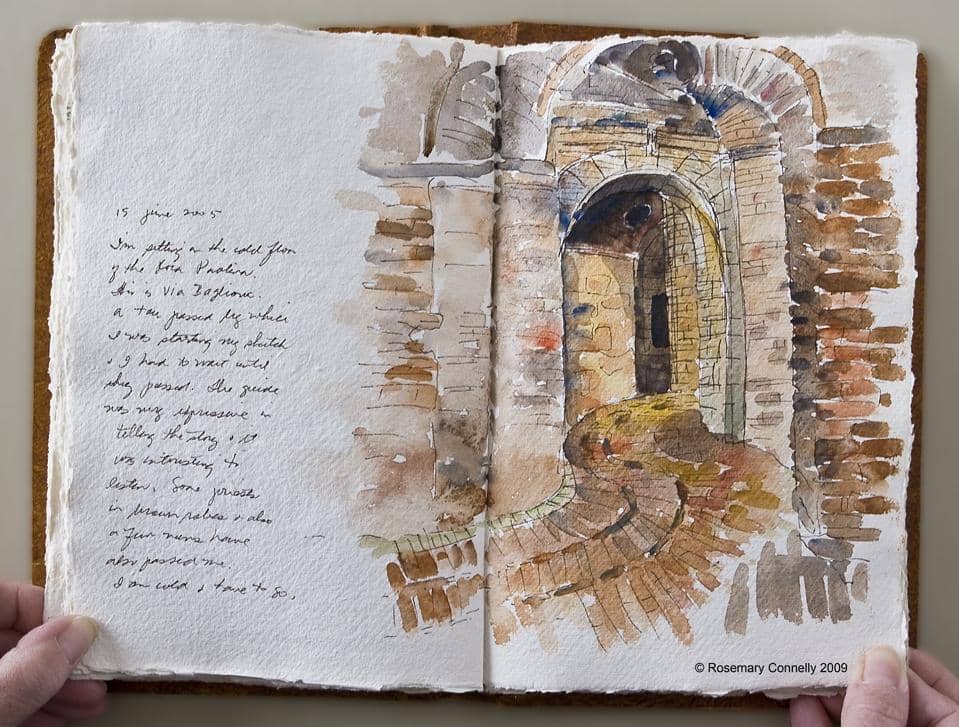 15 june 2005
I'm sitting on the cold floor
of the Rocca Paolina.
This is Via Baglione.
a tour passed by while
I was starting my sketch
& I had to wait until
they passed. The guide
was very expressive in
telling the story & it
was interesting to
listen. Some priests
in brown robes & also
a few nuns have
also passed me.
I am cold & have to go.
© Rosemary Connelly 2009